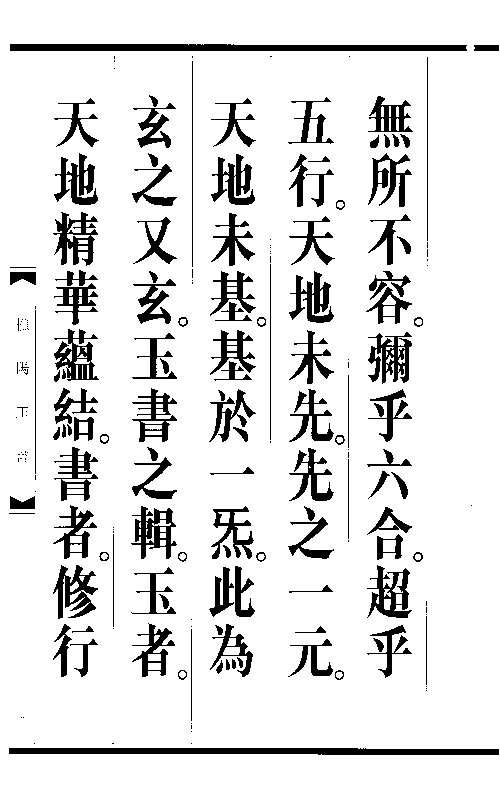 無所不容。彌乎六合。超乎
五行。天地未先。先之一元。
天地未基。基於一炁。此為
玄之又玄。玉書之輯。玉者。
天地精華蘊結。書者。修行